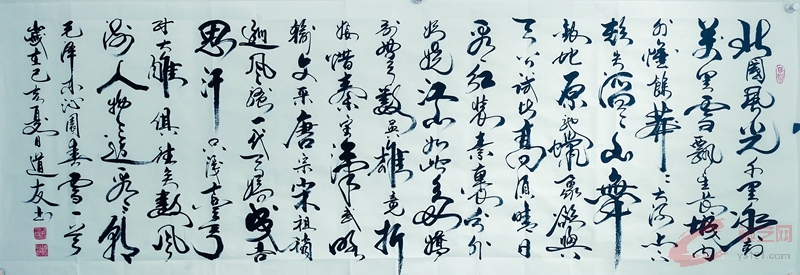 北國風光千里冰封
萬里雪飄望長城内
外惟餘莽莽大河上下
頓失滔滔山舞
銀蛇原馳蠟象欲與
天公試比高須晴日
看紅裝素裹分外
妖嬈江山如此多嬌
引無數英雄競折
腰惜秦皇漢武略
輸文采唐宗宋祖稍
遜風騷一代天驕成吉
思汗只識彎弓
射大雕俱往矣數風
流人物還看今朝
毛澤東沁園春雪一首
歲在己亥夏日道友書